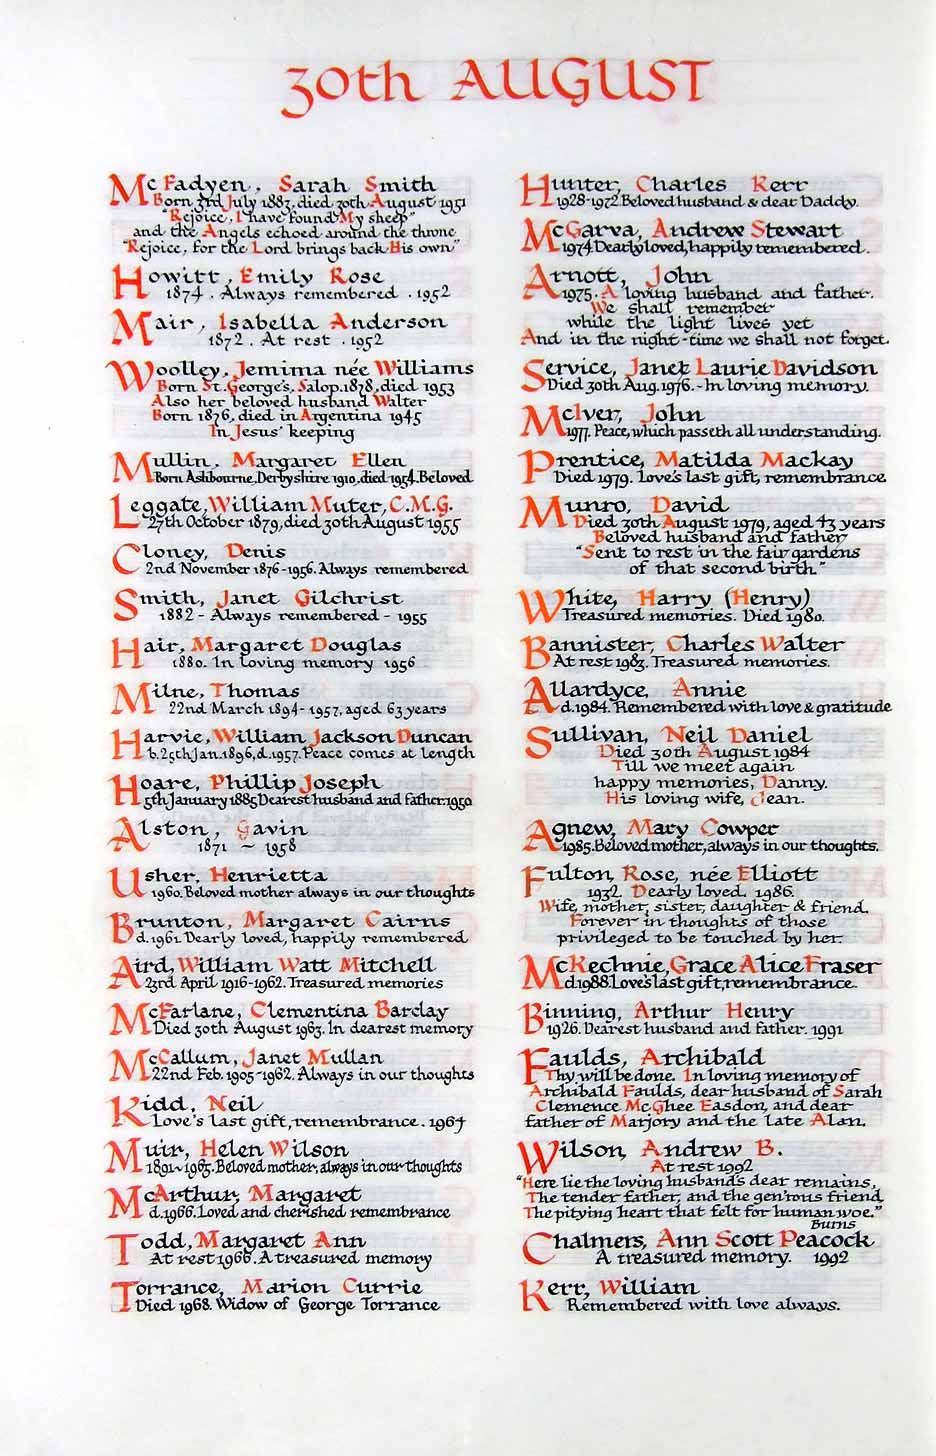 30th AUGUST
McFadyen, Sarah Smith
Born 3rd July 1883, died 30th August 1951
"Rejoice, I have found My sheep"
and the Angels echoed around the throne
"Rejoice, for the Lord brings back His own"
Howitt, Emily Rose
1874. Always remembered. 1952
Mair, Isabella Anderson
1872. At rest. 1952
Woolley, Jemima née Williams
Born St. George's, Salop. 1878, died 1953
Also her beloved husband Walter
Born 1876, died in Argentina 1945
In Jesus' keeping
Mullin, Margaret Ellen
Born Ashbourne, Derbyshire 1910, died 1954. Beloved
Leggate, William Muter, C.M.G.
27th October 1879, died 30th August 1955
Cloney, Denis
2nd November 1876-1956. Always remembered
Smith, Janet Gilchrist
1882 - Always remembered - 1955
Hair, Margaret Douglas
1880. In loving memory 1956
Milne, Thomas
22nd March 1894-1957, aged 63 years
Harvie, William Jackson Duncan
b. 25th Jan. 1896, d. 1957. Peace comes at length
Hoare, Phillip Joseph
5th January 1885 Dearest husband and father. 1950
Alston, Gavin
1871 ~ 1958
Usher, Henrietta
1960. Beloved mother always in our thoughts
Brunton, Margaret Cairns
d. 1961. Dearly loved, happily remembered
Aird, William Watt Mitchell
23rd April 1916-1962. Treasured memories
McFarlane, Clementina Barclay
Died 30th August 1963. In dearest memory
McCallum, Janet Mullan
22nd Feb. 1905-1962. Always in our thoughts
Kidd, Neil
Love's last gift, remembrance. 1964
Muir, Helen Wilson
1891~1965. Beloved mother, always in our thoughts
McArthur, Margaret
d. 1966. Loved and cherished remembrance
Todd, Margaret Ann
At rest 1966. A treasured memory
Torrance, Marion Currie
Died 1968. Widow of George Torrance
Hunter, Charles Kerr
1928-1972 Beloved husband & dear Daddy.
McGarva, Andrew Stewart
1974 Dearly loved, happily remembered.
Arnott, John
1975. A loving husband and father.
We shall remember
while the light lives yet
And in the night-time we shall not forget.
Service, Janet Laurie Davidson
Died 30th Aug. 1976. - In loving memory.
McIver, John
1977. Peace, which passeth all understanding.
Prentice, Matilda Mackay
Died 1979. Love's last gift, remembrance
Munro, David
Died 30th August 1979, aged 43 years
Beloved husband and father
"Sent to rest in the fair gardens
of that second birth."
White, Harry (Henry)
Treasured memories. Died 1980.
Bannister, Charles Walter
At rest 1983. Treasured memories.
Allardyce, Annie
d. 1984. Remembered with love & gratitude
Sullivan, Neil Daniel
Died 30th August 1984
Till we meet again
happy memories, Danny.
His loving wife, Jean.
Agnew, Mary Cowper
1985. Beloved mother, always in our thoughts.
Fulton, Rose, née Elliott
1932. Dearly loved. 1986.
Wife, mother, sister, daughter & friend.
Forever in thoughts of those
privileged to be touched by her.
McKechnie, Grace Alice Fraser
d. 1988. Love's last gift, remembrance.
Binning, Arthur Henry
1926. Dearest husband and father. 1991
Faulds, Archibald
Thy will be done. In loving memory of
Archibald Faulds, dear husband of Sarah
Clemence McGhee Easdon, and dear
father of Marjory and the late Alan.
Wilson, Andrew B.
At rest 1992
"Here lie the loving husband's dear remains,
The tender father, and the gen'rous friend,
The pitying heart that felt for human woe."
Burns
Chalmers, Ann Scott Peacock
A treasured memory. 1992
Kerr, William
Remembered with love always.